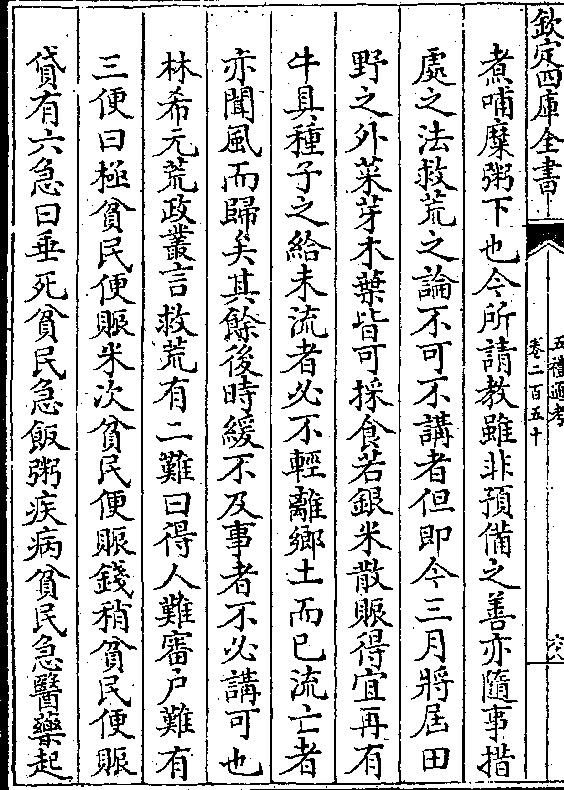 欽定四庫全書
五禮通考
卷二百五十
煮哺糜粥下也今所請教雖非預備之善亦隨事措
處之法救荒之論不可不講者但即今三月將屆田
野之外菜芽木葉皆可採食若銀米散賑得宜再有
牛具種子之給未流者必不輕離鄉土而已流亡者
亦聞風而歸矣其餘後時緩不及事者不必講可也
林希元荒政叢言救荒有二難曰得人難審户難有
三便曰極貧民便賑米次貧民便賑錢稍貧民便賑
貸有六急曰垂死貧民急飯粥疾病貧民急醫藥起